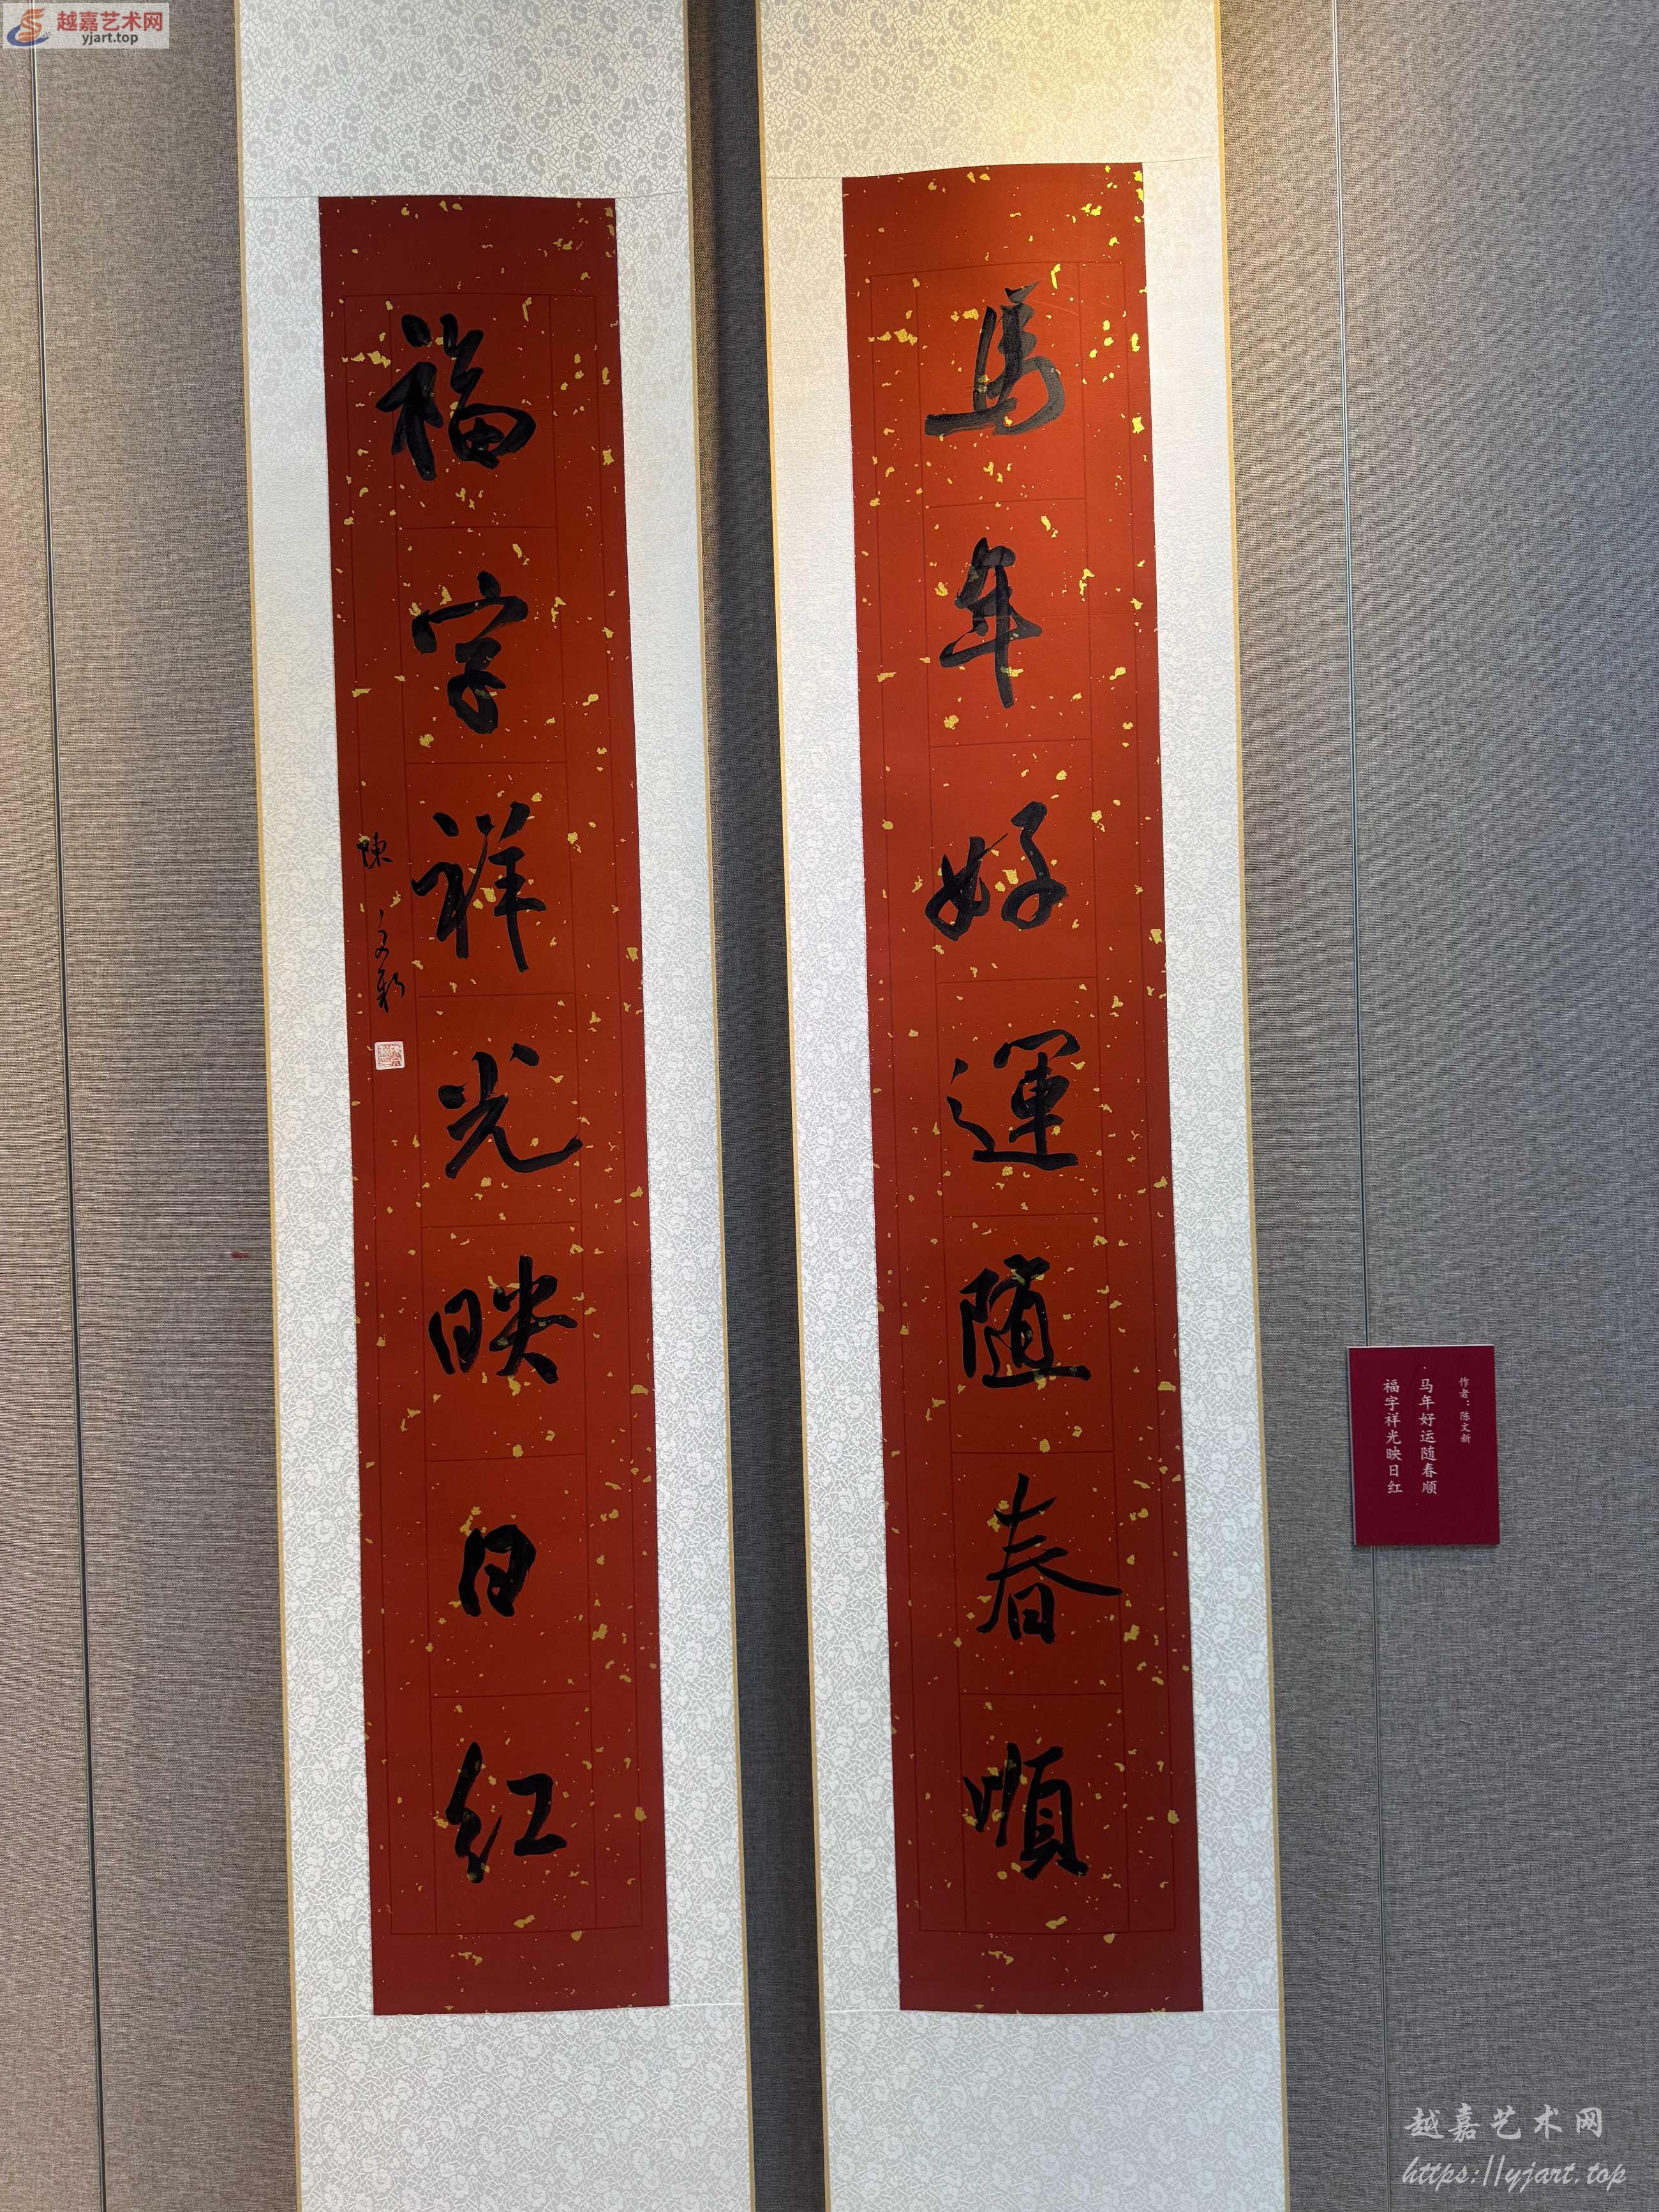 越嘉艺术网
yjart.top
馬年好運随春順
福字祥光映日红
陳文新
作者：陈文新
马年好运随春顺
福字祥光映日红
越嘉艺术网
https://yjart.top